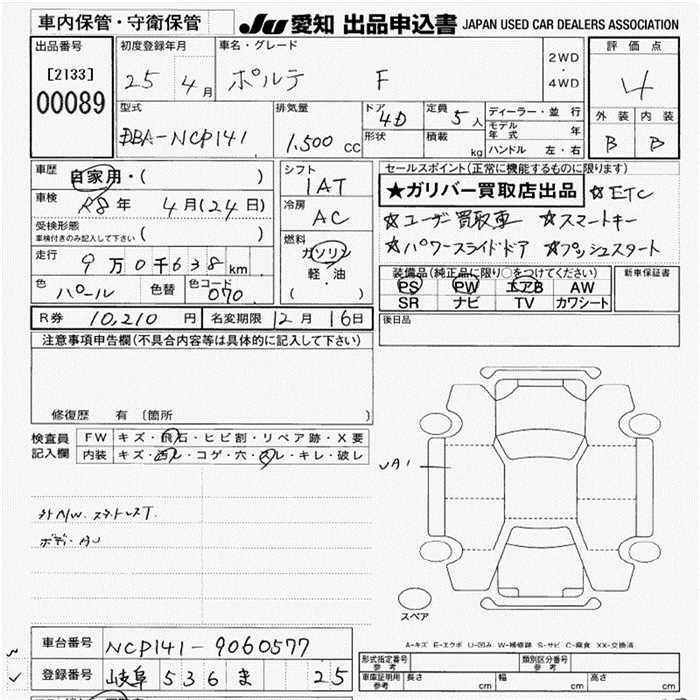 車内保管・守衛保管
JU 愛知 出品申込書 JAPAN USED CAR DEALERS ASSOCIATION
出品番号
[2133]
00089
初度登録年月
25 4月
車名・グレード
ポルテ F
2WD
・
4WD
評価点
4
外装 内装
B B
型式
DBA-NCP141
排気量
1.500 CC
ドア 4D
形状
定員 5人
積載 kg
ディーラー・並行
モデル年式 年
ハンドル 左・右
車歴 自家用・( )
車検 R8年 4月(24日)
受検形態
車検付きのみ記入して下さい ( )
走行 9万0千638km
色 パール 色替 色コード 070
シフト
IAT
冷房
AC
燃料
ガソリン
軽・油
( )
セールスポイント(正常に機能するものに限ります)
★ガリバー買取店出品 ☆ETC
☆ユーザー買取車 ☆スマートキー
☆パワースライドドア ☆プッシュスタート
装備品(純正品に限り○をつけてください)
PS PW エアB AW
SR ナビ TV カワシート
新車保証書
R券 10,210円 名変期限 12月 16日
後日品
注意事項申告欄(不具合内容等は具体的に記入して下さい)
修復歴 有 〔箇所 〕
検査員記入欄
FW キズ・飛石・ヒビ割・リペア跡・X要
内装 キズ・凹レ・コゲ・穴・スレ・キレ・破レ
外A/W. スタットレスT.
ボディ・AU
UA1
スペア
A=キズ E=エクボ U=凹み W=補修跡 S=サビ C=腐食 XX=交換済
車台番号 NCP141-9060577
登録番号 岐阜 536 ま 25
型式指定番号 参考
類別区分番号 参考
車庫証明用 参考 長さ cm 幅 cm 高さ cm